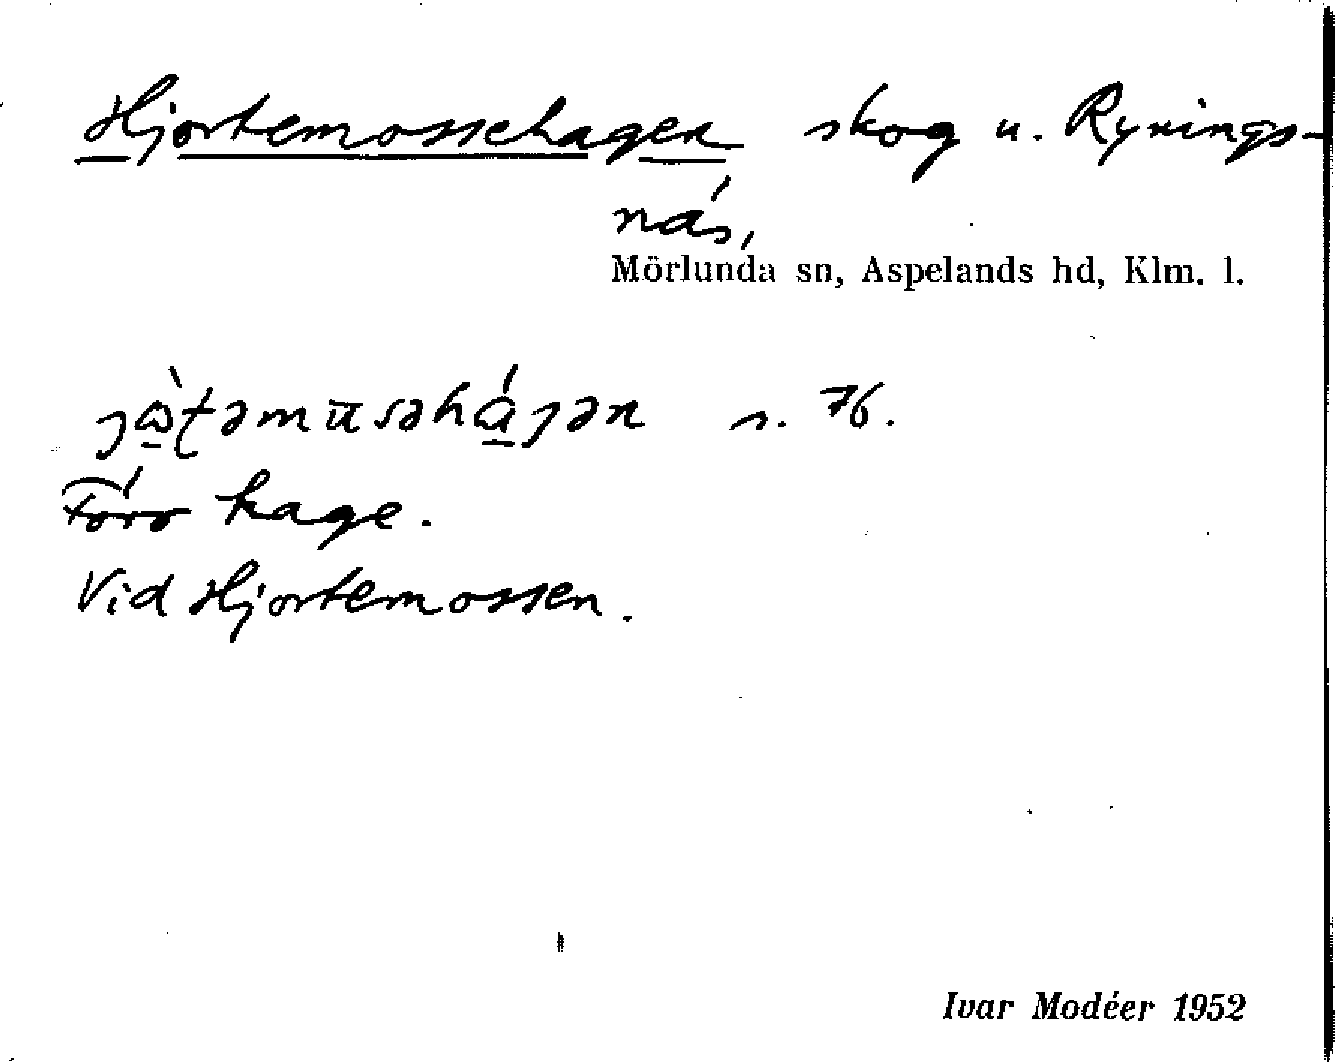 Hjortemossehagen skog u. Rynings-
näs,
Mörlunda sn, Aspelands hd, Klm. l.
s. 76.
Förr hage.
Vid Hjortemossen.
Ivar Modéer 1952